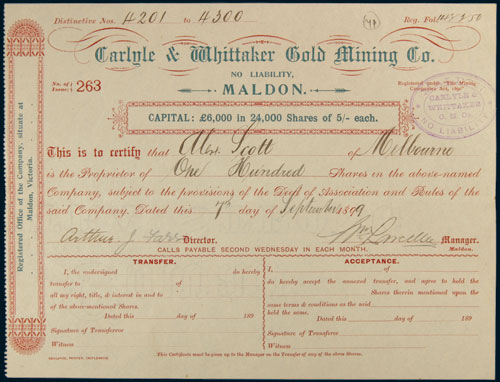 Distinctive Nos. 4201 to 4300
Reg. Fol.
Carlyle & Whittaker Gold Mining Co.
NO LIABILITY,
MALDON.
No. of Issue: 263
Registered under "The Mining Companies Act, 1890"
CARLYLE & WHITTAKER G. M. Co. NO LIABILITY
CAPITAL: £6,000 in 24,000 Shares of 5/- each.
This is to certify that Abr. Scott of Melbourne
is the Proprietor of One Hundred Shares in the above-named
Company, subject to the provisions of the Deed of Association and Rules of the
said Company. Dated this 7th day of September 1899
Arthur J. Director. Manager.
Maldon.
CALLS PAYABLE SECOND WEDNESDAY IN EACH MONTH.
Registered Office of the Company, situate at
Maldon, Victoria.
TRANSFER.
I, the undersigned do hereby
transfer to
all my right, title, & interest in and to
Dated this day of 189
Signature of Transferor
Witness
ACCEPTANCE.
I, of
do hereby accept the assured transfer, and agree to hold the
Shares therein mentioned upon the
same terms & conditions as the said
held the same.
Dated this day of 189
Signature of Transferee
Witness
This Certificate must be given up to the Manager on the Transfer of any of the above Shares.